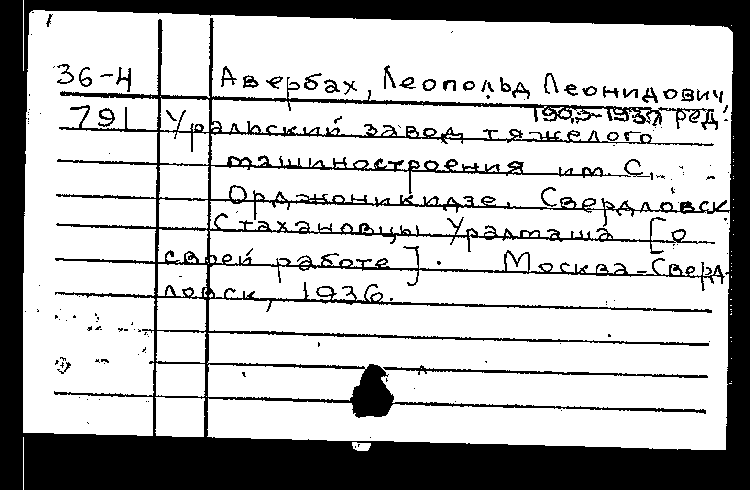 36-4 Авербах, Леопольд Леонидович,
1903-1937, ред.
791 Уральский завод тяжелого
машиностроения им. С.
Орджоникидзе. Свердловск
Стахановцы Уралмаша [о
своей работе]. Москва-Сверд-
ловск, 1936.